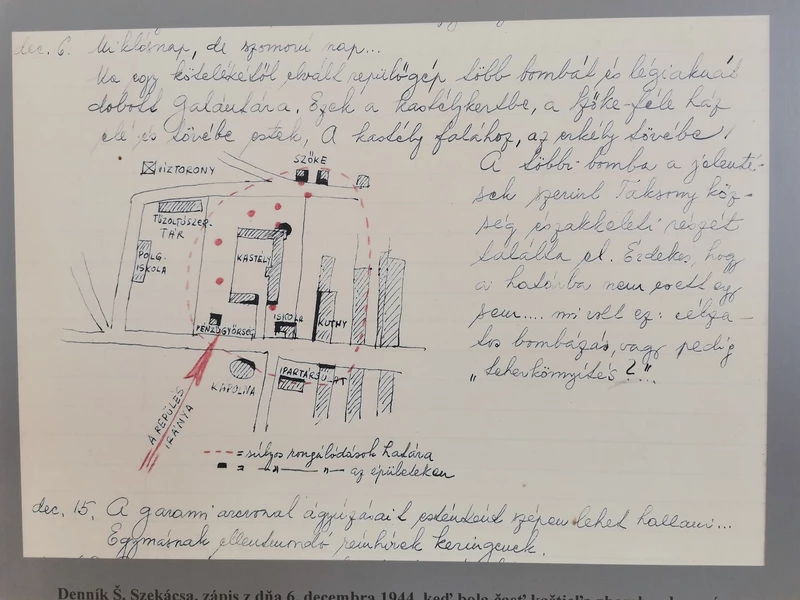 dec. 6. Miklósnap, de szomorú nap...
Ma egy kötelékétől elvált repülőgép több bombát és légiaknát
dobott Galántára. Ezek a kastélykertbe, a Szőke-féle ház
elé és tövébe estek, A kastély falához, az erkély tövébe!
A többi bomba a jelenté-
sek szerint Taksony köz-
ség északkeleti részét
találta el. Érdekes, hogy
a határba nem esett egy
sem.... mi volt ez: célza-
tos bombázás, vagy pedig
"teherkönnyítés?"...
SZŐKE
VÍZTORONY
TŰZOLTÓSZER-
TÁR
POLG.
ISKOLA
KASTÉLY
PÉNZÜGYŐRSÉG
ISKOLA
KUTHY
KÁPOLNA
IPARTÁRSULAT
A REPÜLÉS
IRÁNYA
= súlyos rongálódások határa
= " — " — az épületeken
dec. 15. A garami arcvonal ágyúzásait esténként szépen lehet hallani...
Egymásnak ellentmondó rémhírek keringenek.
Denník Š. Szekácsa, zápis z dňa 6. decembra 1944, keď bola časť kaštieľa